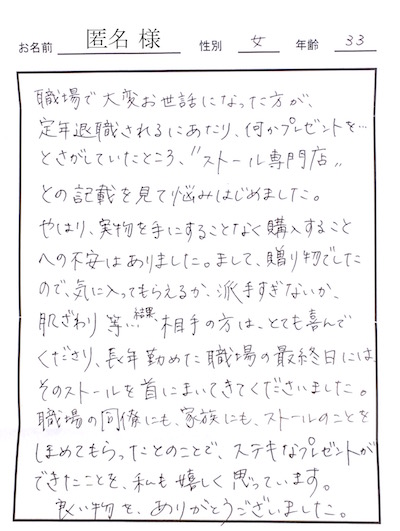 お名前 匿名 様 性別 女 年齢 33
職場で大変お世話になった方が、
定年退職されるにあたり、何かプレゼントを…
とさがしていたところ、〃ストール専門店〃
との記載を見て悩みはじめました。
やはり、実物を手にすることなく購入すること
への不安はありました。まして、贈り物でした
ので、気に入ってもらえるか、派手すぎないか、
肌ざわり等…結果、相手の方は、とても喜んで
くださり、長年勤めた職場の最終日には
そのストールを首にまいてきてくださいました。
職場の同僚にも、家族にも、ストールのことを
ほめてもらったとのことで、ステキなプレゼントが
できたことを、私も嬉しく思っています。
良い物を、ありがとうございました。